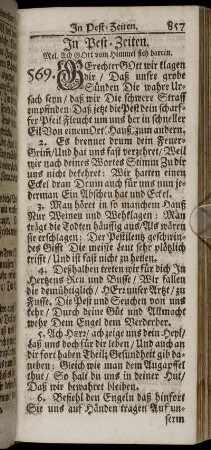 In Pest-Zeiten. 857
In Pest-Zeiten.
Mel. Ach GOtt vom Himmel sieh darein.
569. GErechter GOtt wir klagen
dir / Daß unsre grobe
Sünden Die wahre Ur-
sach seyn / daß wir Die schwere Straff
empfinden Daß jetzt die Pest dein scharf-
fer Pfeil Fleucht um uns her in schneller
Eil Von einem Ort, Hauß, zum andern.
2. Es brennet drum dein Feuer-
Grim / Und hat uns fast verzehret / Weil
wir nach deines Wortes Stimm Zu dir
uns nicht bekehrt: Wir hatten einen
Eckel dran Drum auch für uns nun je-
derman Ein Abscheu hat und Eckel.
3. Man höret in so manchem Hauß
Nur Weinen und Wehklagen: Man
trägt die Todten häuffig aus / Als wären
sie erschlagen: Der Pestilentz geschwin-
des Gifft Die meiste Leut sehr plötzlich
trifft / Und ist fast nicht zu heilen.
4. Deßhalben treten wir für dich In
Hertzens Reu und Busse / Wir fallen
dir demühtiglich / HErr unser Artzt / zu
Fusse. Die Pest und Seuchen von uns
kehr / Durch deine Güt und Allmacht
wehr Dem Engel dem Verderber.
5. Ach HErr / ach zeige uns dein Heyl /
Laß uns doch für dir leben / Und auch an
dir fort haben Theil; Gesundheit gib da-
neben: Gleich wie man dem Augapffel
thut / So halt du uns in deiner Hut /
Daß wir bewahret bleiben.
6. Befehl den Engeln daß hinfort
Sie uns auf Händen tragen Auf un-
serm